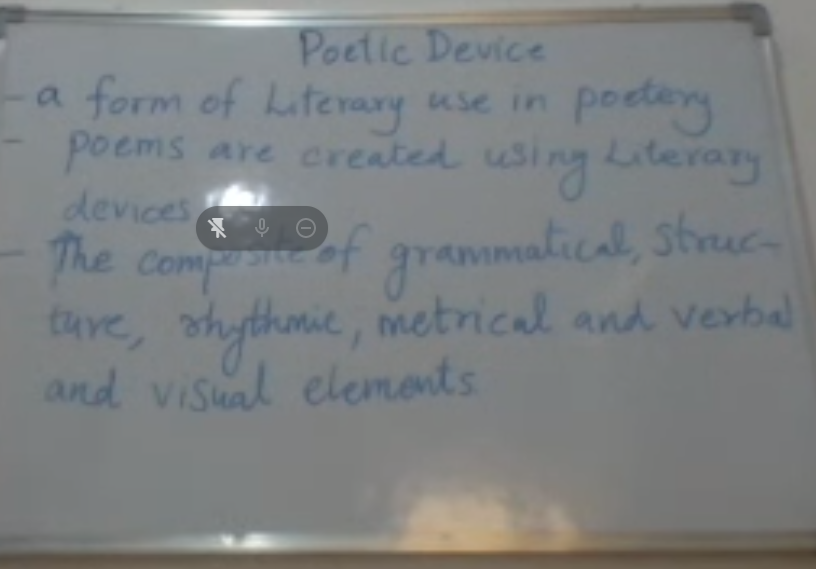 Poetic Device
- a form of Literary use in poetery
- poems are created using Literary
devices
- The composite of grammatical, struc-
ture, rhythmic, metrical and verbal
and visual elements.